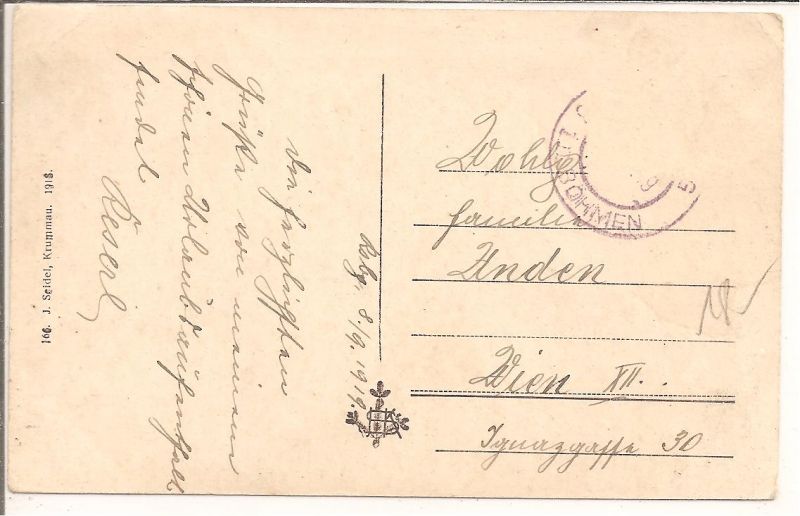 Rbg. 8./9. 1919.
Die herzlichsten
Grüße von meinem
schönen Urlaubsaufenthalt
sendet
Reserl
166. J. Seidel, Krummau. 1918.
BÖHMEN
5
Wohlg.
Familie
Anden
Wien XII.
Ignazgasse 30
18